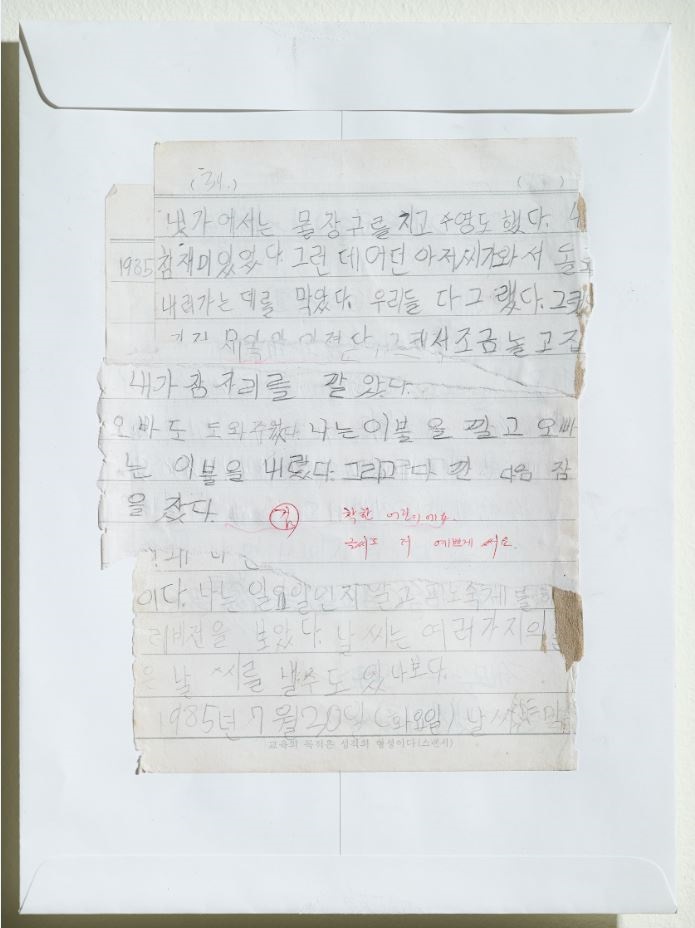 냇가에서는 물장구를 치고 수영도 했다.
1985 참 재미있었다. 그런데 어떤 아저씨가와서 돌
내려가는 데를 막았다. 우리들 다 그랬다.
조금 놀고 집
내가 잠자리를 깔았다.
오빠도 도와주웠다. 나는 이불을 깔고 오빠
는 이불을 내렸다. 그리고 다 깐 다음 잠
을 잤다.
검 착한 어린이예요.
글씨도 더 예쁘게 써요.
이다. 나는 일요일인지 알고
을 보았다. 날씨는 여러가지의
은 날씨를 낼수도 있나보다.
1985년 7월 20일 (화요일) 날씨
교육의 목적은 성격의 형성이다(스펜서)